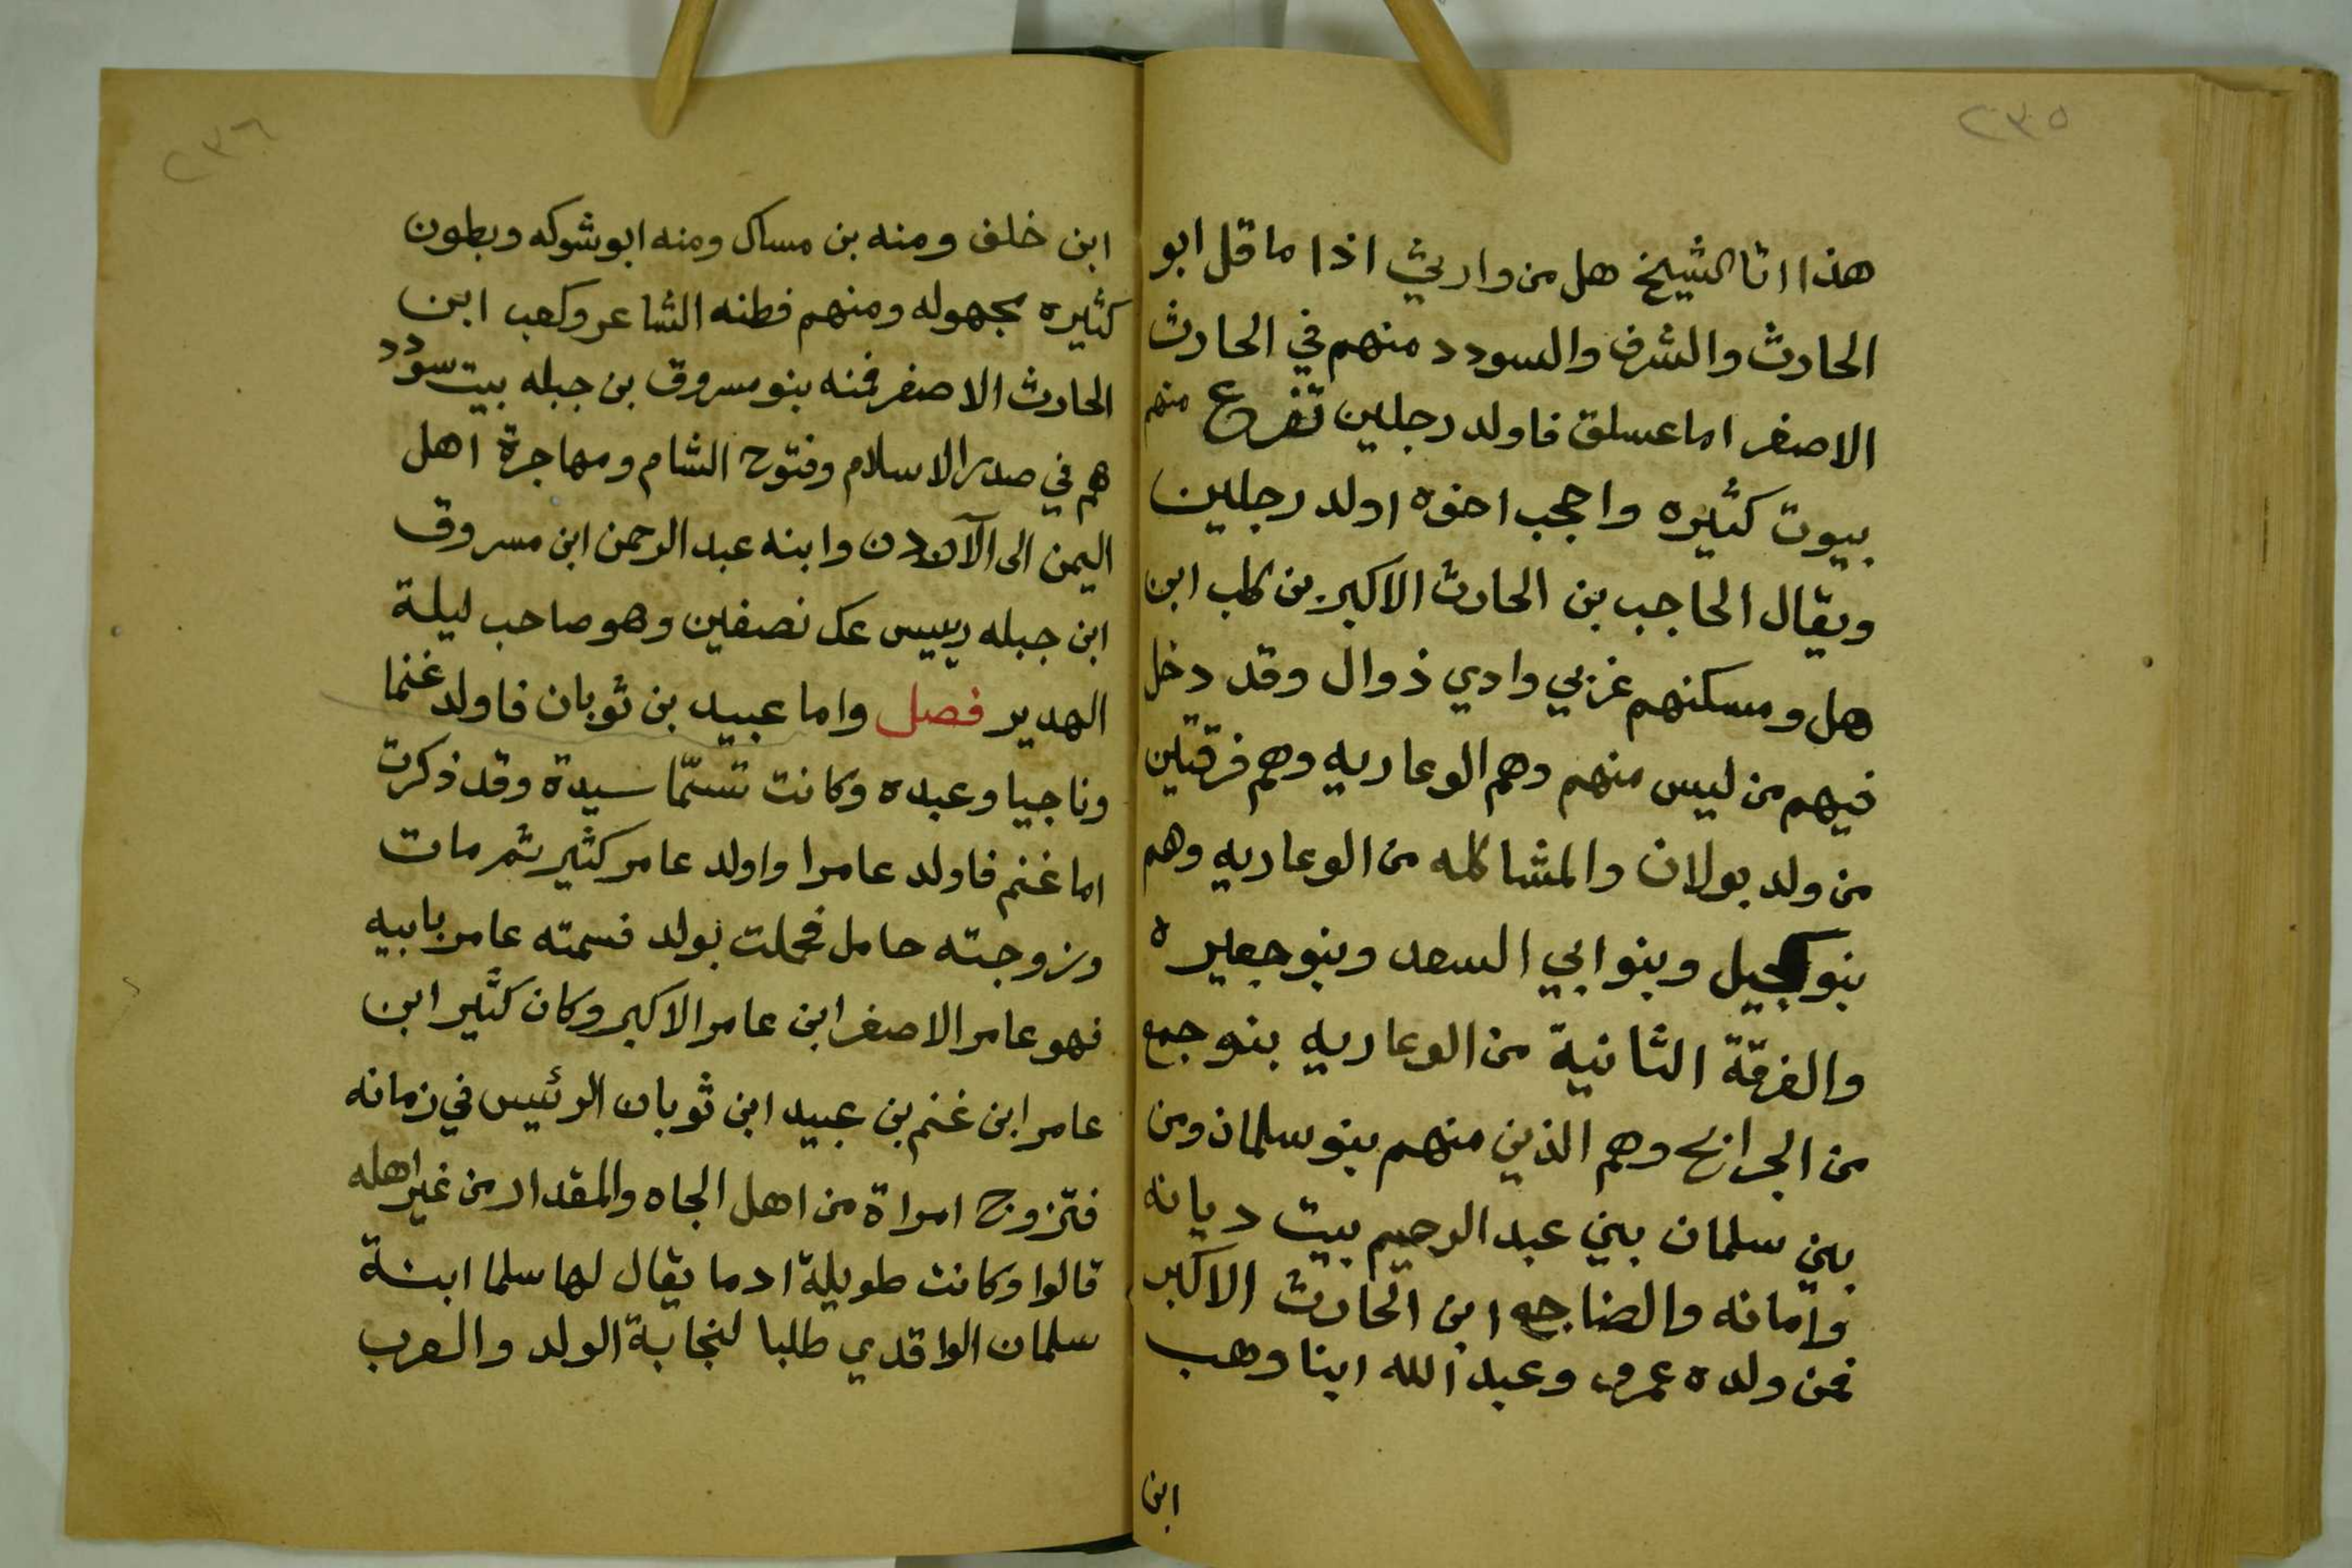 ٢٣٥
هذا اتا الشيخ هل من وارث اذا ما قل ابو
الحارث والشرف والسودد منهم في الحارث
الاصغر اما عسلق فاولد رجلين تفرع منهم
بيوت كثيره واحجب اخوه اولد رجلين
ويقال الحاجب بن الحارث الاكبر بن كلب ابن
هل ومسكنهم غربي وادي ذوال وقد دخل
فيهم من ليس منهم وهم الوعاريه وهم فرقتين
من ولد بولان والمشاكله من الوعاريه وهم
بنو كحيل وبنو ابي السعد وبنو جعيره
والفرقة الثانية من الوعاريه بنو جمع
من الجرابح وهم الذين منهم بنو سلمان ومن
بني سلمان بني عبد الرحيم بيت ديانه
وامانه والضناجعه ابن الحارث الاكبر
فمن ولده عمرو وعبد الله ابنا وهب
ابن
٢٣٦
ابن خلف ومنه بن مساك ومنه ابو شوكه وبطون
كثيره مجهوله ومنهم فطنه الشاعر وكعب ابن
الحارث الاصغر فمنه بنو مسروق بن جبله بيت سودد
هم في صدر الاسلام وفتوح الشام ومهاجرة اهل
اليمن الى وابنه عبد الرحمن ابن مسروق
ابن جبله رييس عك نصفين وهو صاحب ليلة
الهدير فصل واما عبيد بن ثوبان فاولد غنما
وناجيا وعبده وكانت تسمّا سيدة وقد ذكرت
اما غنم فاولد عامرا واولد عامر كثير ثم مات
وزوجته حامل فحملت بولد فسمته عامر بابيه
فهو عامر الاصغر ابن عامر الاكبر وكان كثير ابن
عامر ابن غنم بن عبيد ابن ثوبان الرئيس في زمانه
فتزوج امراة من اهل الجاه والمقدار من غير اهله
قالوا وكانت طويلة ادما يقال لها سلما ابنة
سلمان الواقدي طلبا لنجابة الولد والعرب